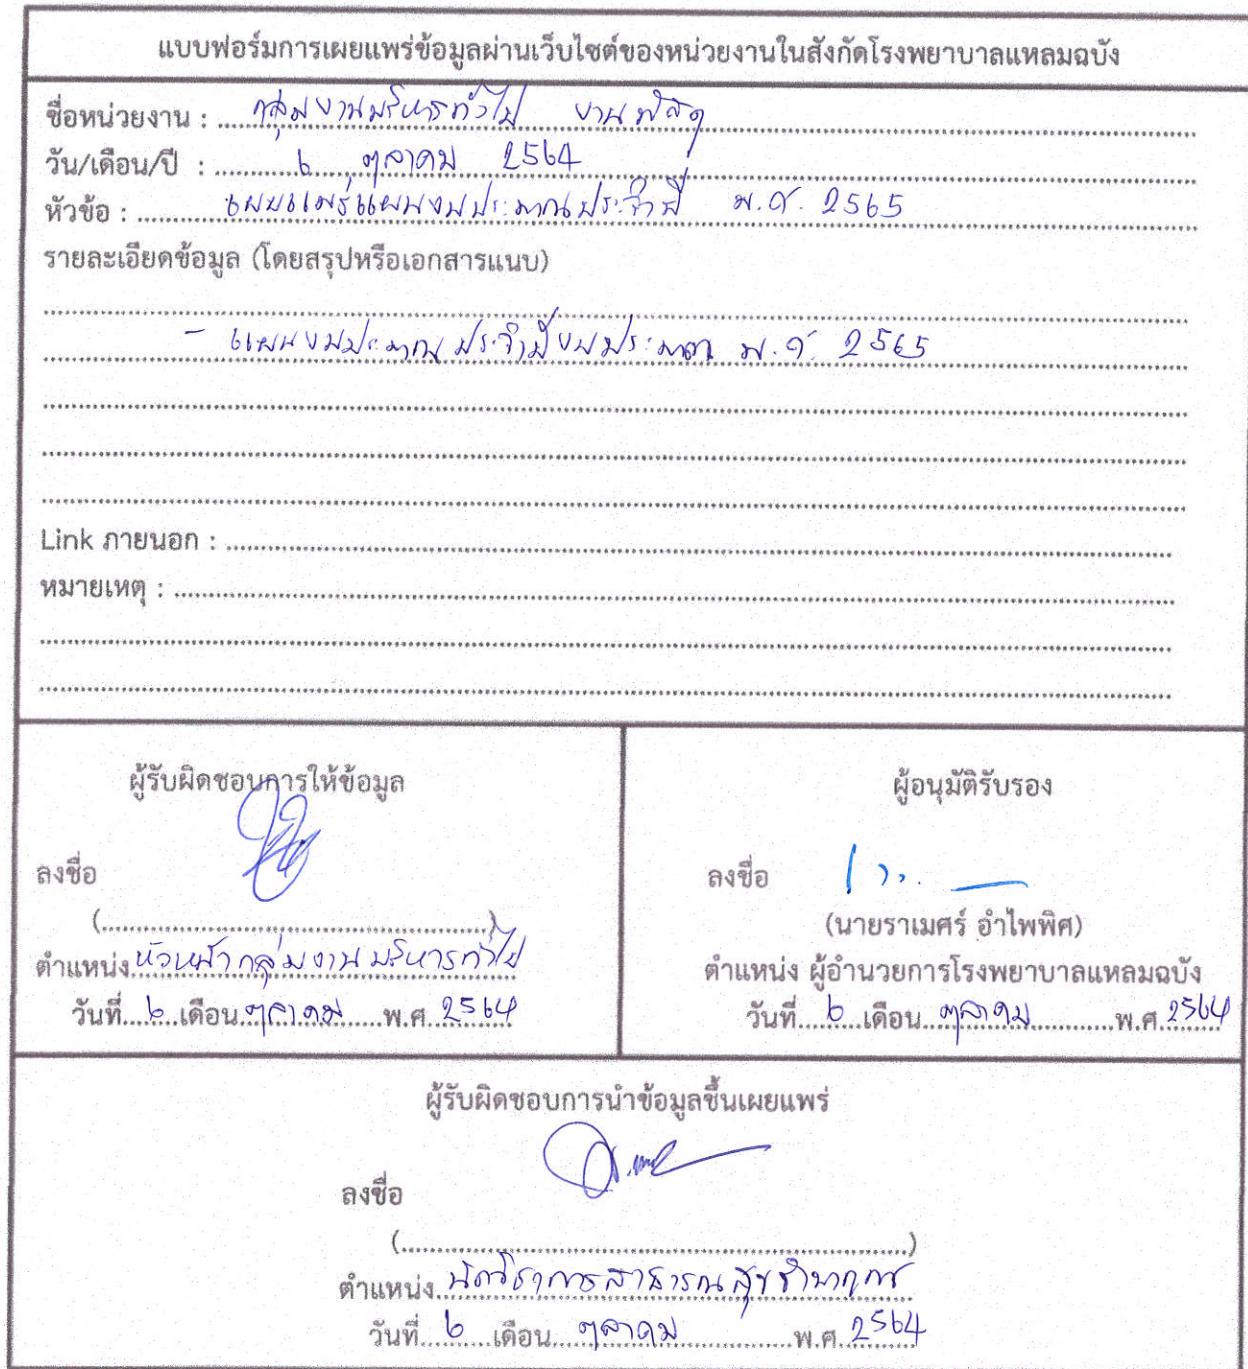 แบบฟอร์มการเผยแพร่ข้อมูลผ่านเว็บไซต์ของหน่วยงานในสังกัดโรงพยาบาลแหลมฉบัง
ชื่อหน่วยงาน : กลุ่มงานบริหารทั่วไป งานพัสดุ
วัน/เดือน/ปี : ๖ ตุลาคม 2564
หัวข้อ : เผยแพร่แผนงบประมาณประจำปี พ.ศ. 2565
รายละเอียดข้อมูล (โดยสรุปหรือเอกสารแนบ)
- แผนงบประมาณประจำปีงบประมาณ พ.ศ. 2565
Link ภายนอก :
หมายเหตุ :
ผู้รับผิดชอบการให้ข้อมูล
ลงชื่อ
(..........)
ตำแหน่ง หัวหน้ากลุ่มงานบริหารทั่วไป
วันที่ ๖ เดือน ตุลาคม พ.ศ. 2564
ผู้อนุมัติรับรอง
ลงชื่อ
(นายราเมศร์ อำไพพิศ)
ตำแหน่ง ผู้อำนวยการโรงพยาบาลแหลมฉบัง
วันที่ ๖ เดือน ตุลาคม พ.ศ. 2564
ผู้รับผิดชอบการนำข้อมูลขึ้นเผยแพร่
ลงชื่อ
(..........)
ตำแหน่ง นักวิชาการสาธารณสุขชำนาญการ
วันที่ ๖ เดือน ตุลาคม พ.ศ. 2564